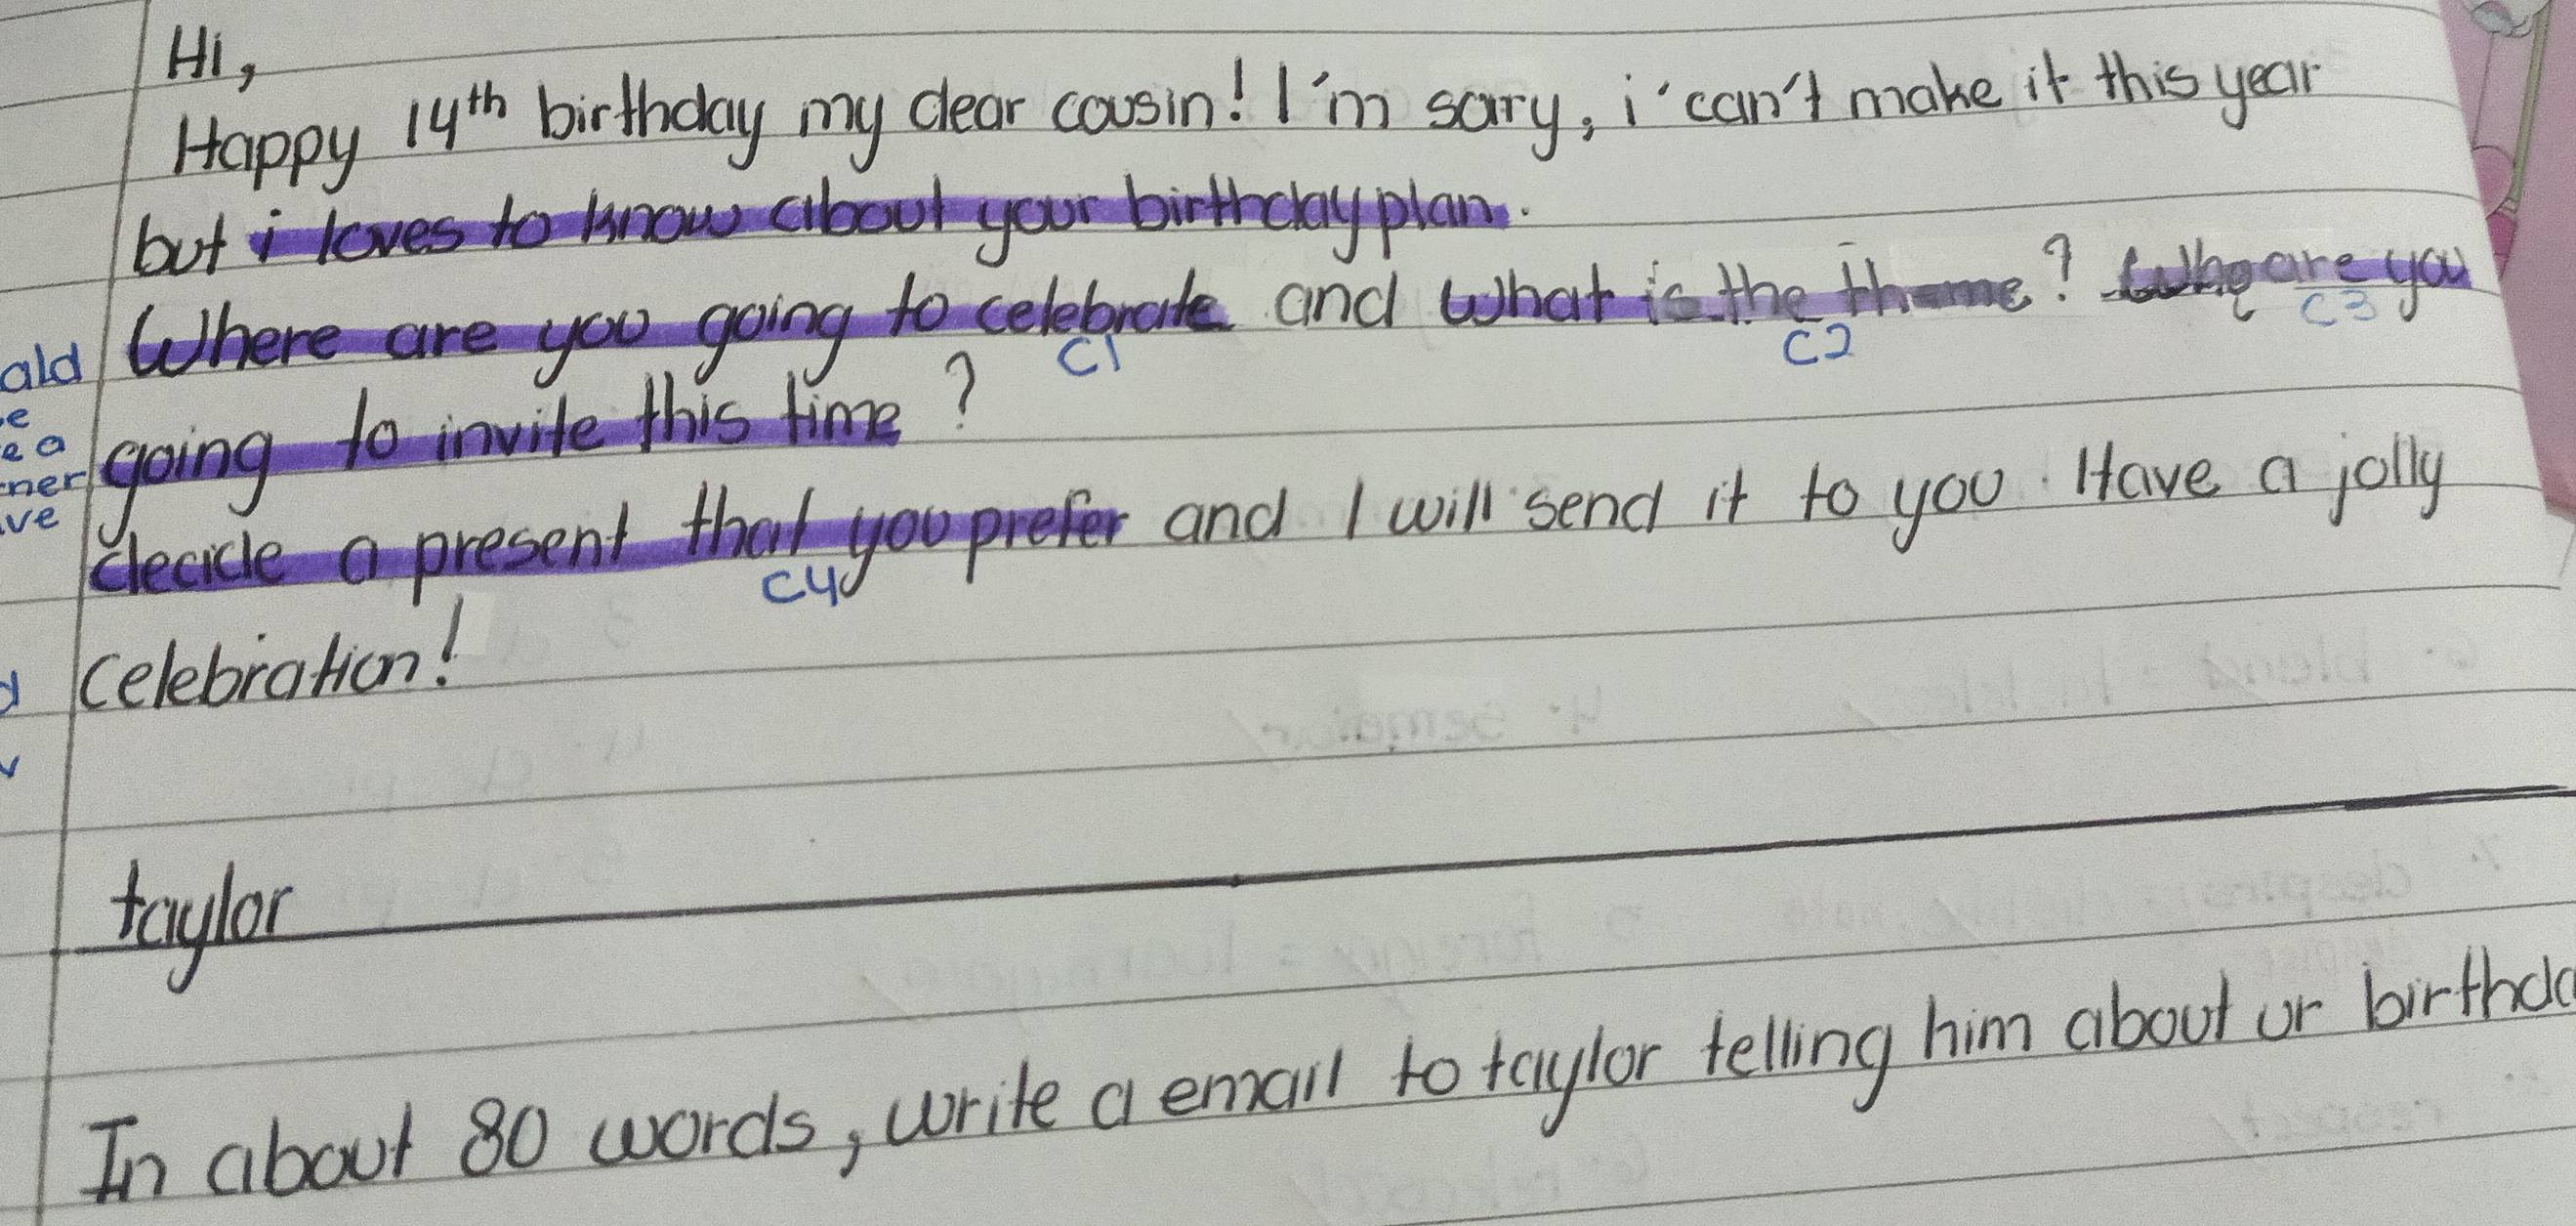 Hi,
Happy 14th birthday my dear cousin! I'm sorry, i'can't make it this year
but i loves to know about your birthday plan.
Where are you going to celebrate and What is the theme? Who are you
C1 C2 C3
ald
going to invite this time?
e
e a
ner
ve
decide a present that you prefer and I will send it to you. Have a jolly
C4
celebration!
taylor
In about 80 words, write a email to taylor telling him about ur birthda